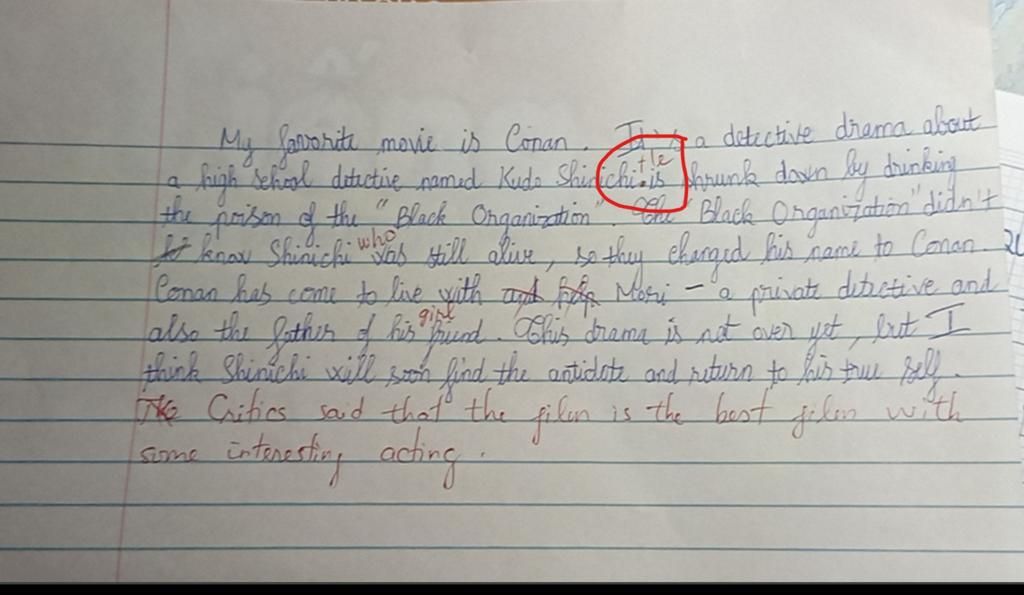 My favorite movie is Conan. It is a detective drama about
a high school detective named Kudo Shinichi. is shrunk down by drinking
the poison of the "Black Organization". The "Black Organization" didn't
know Shinichi who was still alive, so they changed his name to Conan.
Conan has come to live with Mori - a private detective and
also the father of his girl friend. This drama is not over yet, but I
think Shinichi will soon find the antidote and return to his true self.
The Critics said that the film is the best film with
some interesting acting.